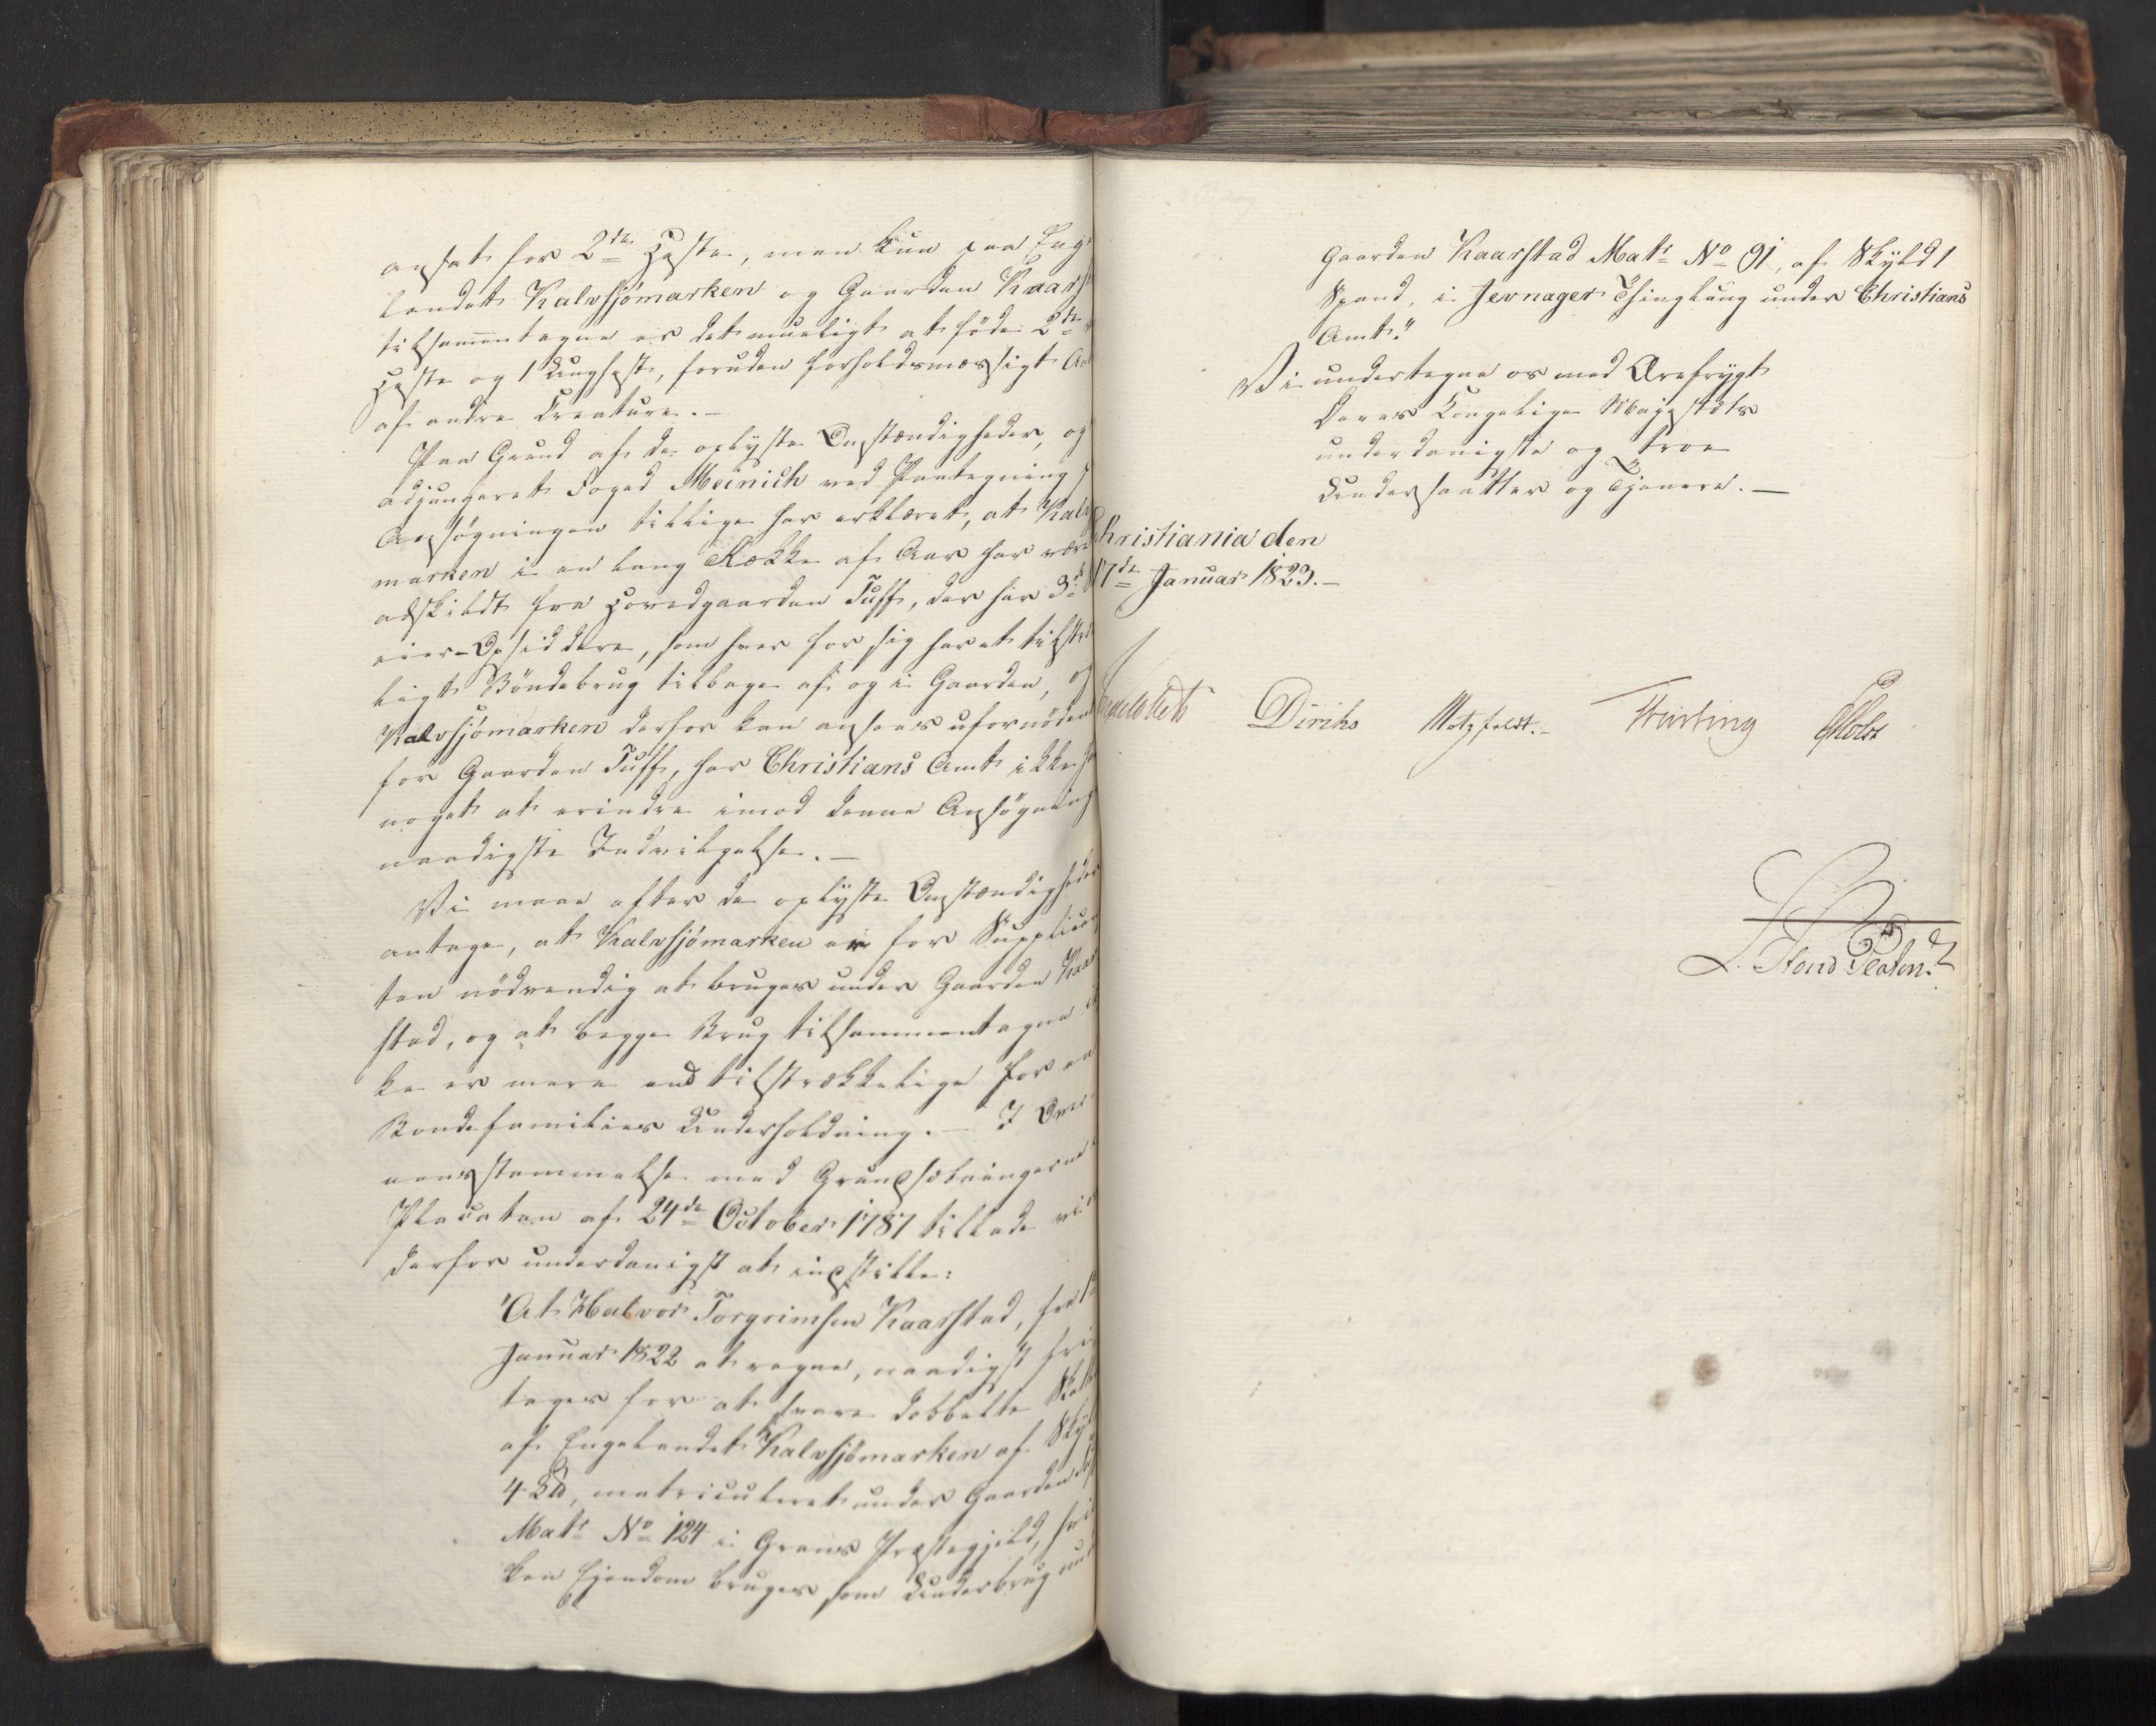 ansat for 2de Heste, men kun paa Eng
landet Kalvsjømarken og Gaarden Kaarst
tilsammentagne er det mueligt at føde 2de
Heste og 1 Unghest, foruden forholdsmæssigt An
af andre Creature. —
Paa Grund af de oplyste Omstændigheder, og
adjungeret Foged Meinich ved Paategning p
Ansøgningen tillige har erklæret, at Kalv
marken i en lang Række af Aar har være
adskildt fra Hovedgaarden Tuff, der har 3de
eier-Opsiddere, som hver for sig har et tilstræ
ligt Bøndebrug tilbage af og i Gaarden, og
Kalvsjømarken derfor kan ansees ufornøden
for Gaarden Tuff, har Christians Amt ikke h
noget at erindre imod denne Ansøgning
naadigste Indvilgelse. —
Vi maae efter de oplyste Omstændigheder
antage, at Kalvsjømarken er for Supplican
ten nødvendig at bruges under Gaarden Kaar
stad, og at begge Brug tilsammentagne ik
ke er mere end tilstrækkelige for en
Bondefamilies Underholdning. — I Over
eensstemmelse med Grundsætningerne
Placaten af 24de October 1787 tillade vi os
derfor underdanigst at indstille:
"At Halvor Torgrimsen Kaarstad, fra 1
Januar 1822 at regne, naadigst fri
tages for at svare dobbelte Skatte
af Engelandet Kalvsjømarken af Skyld
4 L℔, matriculeret under Gaarden Tuff
Matr No 124 i Grans Præstegjeld, hvil
ken Ejendom bruges som Underbrug und
Gaarden Kaarstad Matr No 91, af Skyld 1
Spand, i Jevnager Thinglaug under Christians
Amt."
Vi undertegne os med Ærefrygt
Deres Kongelige Majestæts
underdanigste og troe
Undersaatter og Tjenere. —
Christiania den
17de Januar 1823. —
Diriks Motzfeldt. Treschow Holst